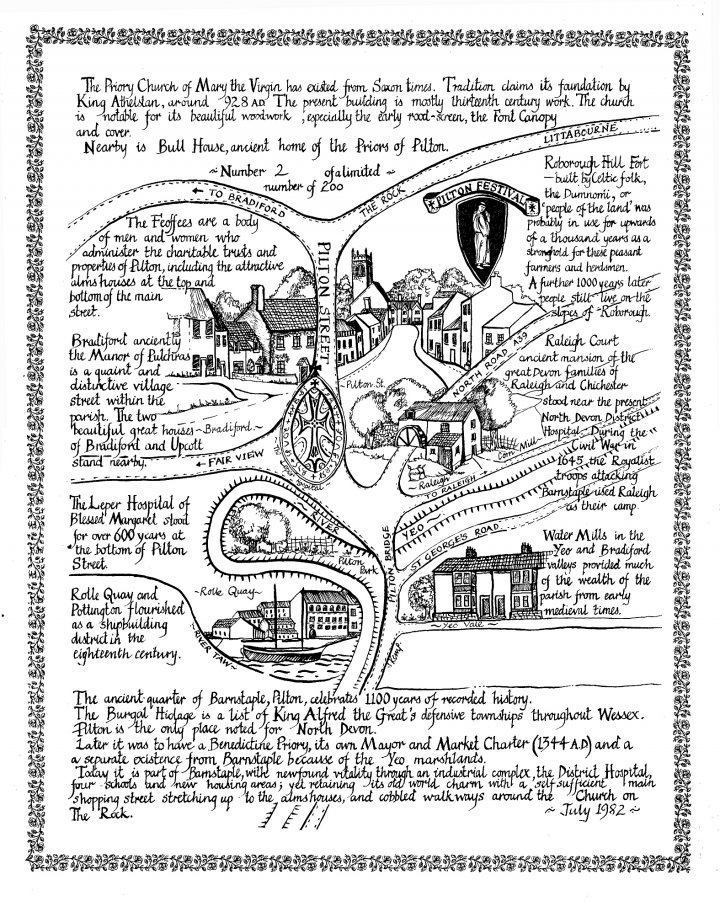 The Priory Church of Mary the Virgin has existed from Saxon times. Tradition claims its foundation by
King Athelstan, around 928 AD The present building is mostly thirteenth century work. The church
is notable for its beautiful woodwork, especially the early rood-screen, the Font Canopy
and cover.
Nearby is Bull House, ancient home of the Priors of Pilton.
~ Number 2 of a limited ~
number of 200
LITTABOURNE
← TO BRADIFORD
THE ROCK
PILTON FESTIVAL
Roborough Hill Fort
– built by Celtic folk,
the Dumnonii, or
'people of the land' was
probably in use for upwards
of a thousand years as a
stronghold for these peasant
farmers and herdsmen.
A further 1000 years later
people still live on the
slopes of Roborough.
The Feoffees are a body
of men and women who
administer the charitable trusts and
properties of Pilton, including the attractive
alms houses at the top and
bottom of the main
street.
PILTON STREET
Bradiford anciently
the Manor of Pulchras
is a quaint and
distinctive village
street within the
parish. The two
beautiful great houses
of Bradiford and Upcott
stand nearby.
~Bradiford.~
← FAIR VIEW
Pilton St.
NORTH ROAD A39
Raleigh Court
ancient mansion of the
great Devon families of
Raleigh and Chichester
stood near the present
North Devon District
Hospital. During the
Civil War in
1645, the Royalist
troops attacking
Barnstaple used Raleigh
as their camp.
Corn Mill
Raleigh
TO RALEIGH
The Leper Hospital of
Blessed Margaret stood
for over 600 years at
the bottom of Pilton
Street.
RIVER
YEO
Pilton
Park
PILTON BRIDGE
ST GEORGE'S ROAD
Water Mills in the
Yeo and Bradiford
valleys provided much
of the wealth of the
parish from early
medieval times.
~ Yeo Vale ~
Rolle Quay and
Pottington flourished
as a shipbuilding
district in the
eighteenth century.
~Rolle Quay~
RIVER TAW
The ancient quarter of Barnstaple, Pilton, celebrates 1100 years of recorded history.
The Burgal Hidage is a list of King Alfred the Great's defensive townships throughout Wessex.
Pilton is the only place noted for North Devon.
Later it was to have a Benedictine Priory, its own Mayor and Market Charter (1344 A.D) and a
a separate existence from Barnstaple because of the Yeo marshlands.
Today it is part of Barnstaple, with newfound vitality through an industrial complex, the District Hospital,
four schools and new housing areas; yet retaining its old world charm with a self sufficient main
shopping street stretching up to the almshouses, and cobbled walkways around the Church on
The Rock.
~ July 1982 ~